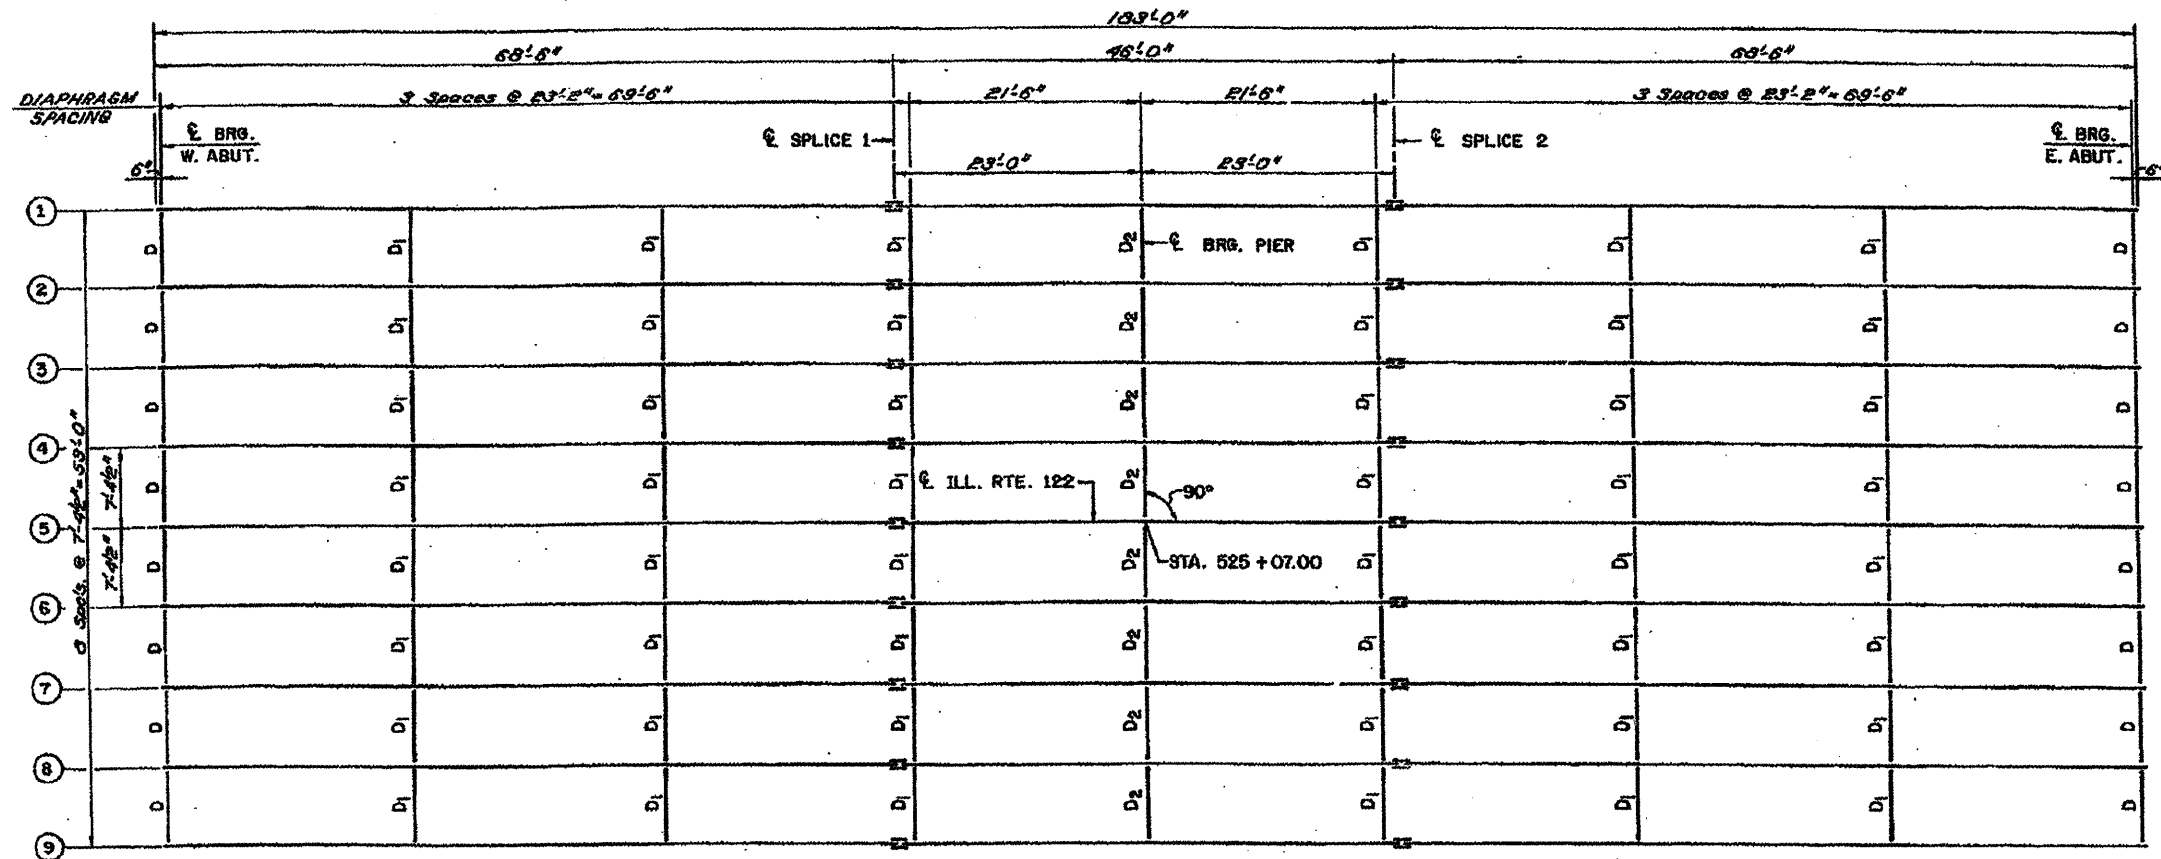 183'-0"
68'-6" 46'-0" 68'-6"
DIAPHRAGM
SPACING
3 Spaces @ 23'-2" = 69'-6" 21'-6" 21'-6" 3 Spaces @ 23'-2" = 69'-6"
℄ BRG.
W. ABUT.
℄ SPLICE 1
℄ SPLICE 2
℄ BRG.
E. ABUT.
6" 23'-0" 23'-0" 6"
1
D D1 D1 D1 D2 ℄ BRG. PIER D1 D1 D1 D
2
D D1 D1 D1 D2 D1 D1 D1 D
3
D D1 D1 D1 D2 D1 D1 D1 D
4
D D1 D1 D1 ℄ ILL. RTE. 122 D2 90° D1 D1 D1 D
5
D D1 D1 D1 D2 STA. 525 + 07.00 D1 D1 D1 D
6
D D1 D1 D1 D2 D1 D1 D1 D
7
D D1 D1 D1 D2 D1 D1 D1 D
8
D D1 D1 D1 D2 D1 D1 D1 D
9
8 Spa's. @ 7'-4½" = 59'-0"
7'-4½" 7'-4½"